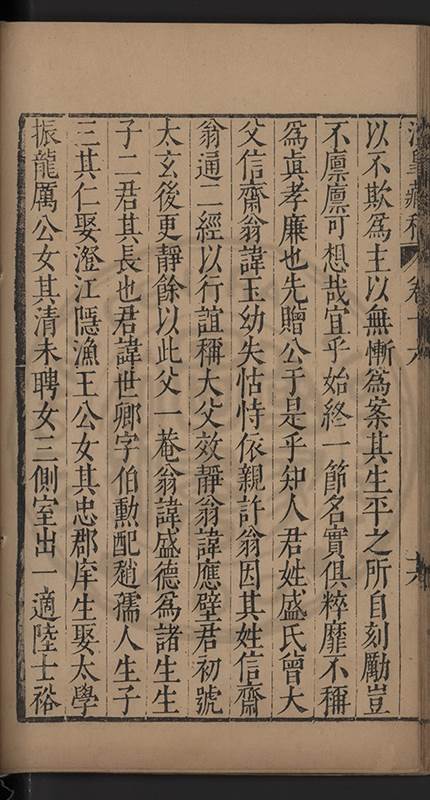 藏稿 卷十六 十六
以不欺爲主以無慚爲案其生平之所自刻勵豈
不廪廪可想哉宜乎始終一節名實俱粹靡不稱
爲眞孝廉也先贈公于是乎知人君姓盛氏曾大
父信齋翁諱玉幼失怙恃依親許翁因其姓信齋
翁通二經以行誼稱大父效靜翁諱應壁君初號
太玄後更靜餘以此父一菴翁諱盛德爲諸生生
子二君其長也君諱世卿字伯勲配趙孺人生子
三其仁娶澄江隱漁王公女其忠郡庠生娶太學
振龍厲公女其清未聘女三側室出一適陸士裕